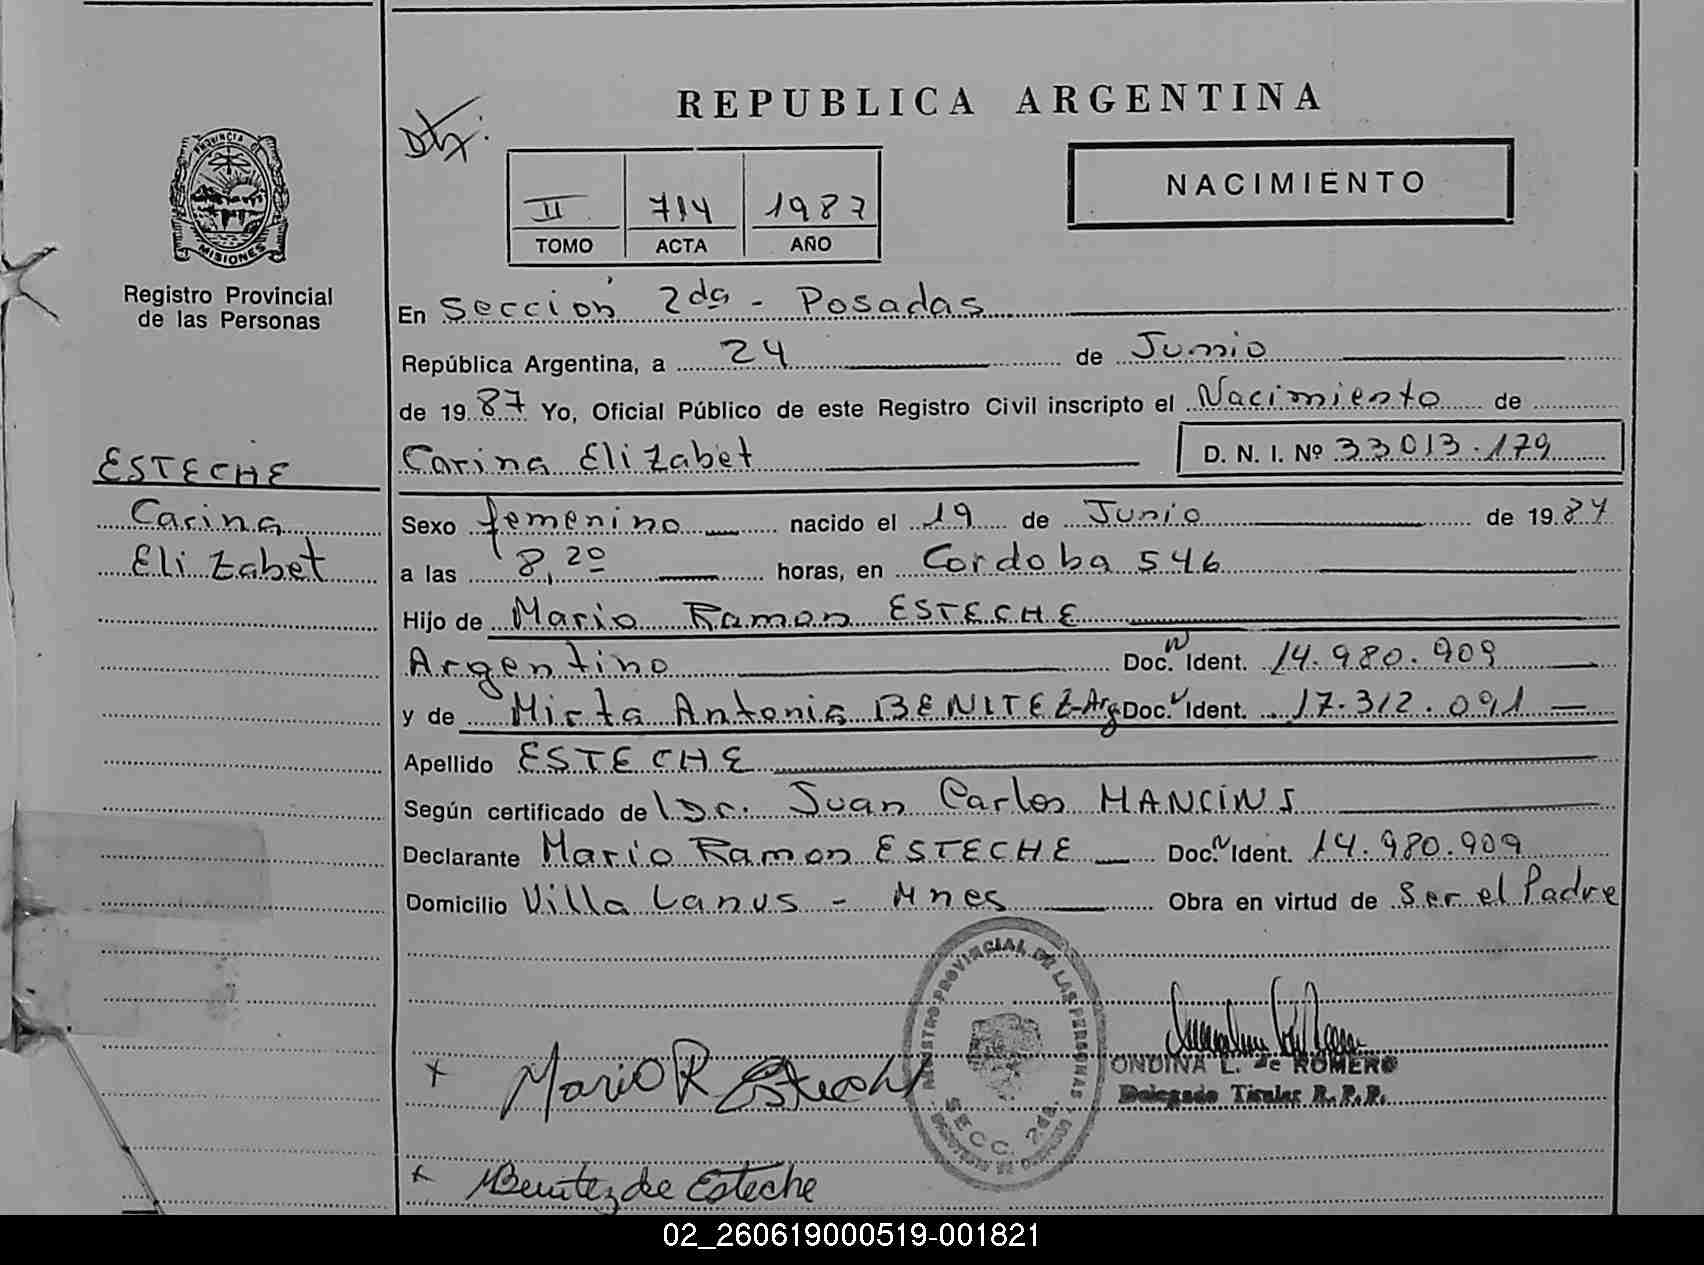 REPUBLICA ARGENTINA
PROVINCIA DE
MISIONES
Registro Provincial
de las Personas
II 714 1987
TOMO ACTA AÑO
NACIMIENTO
En Sección 2da - Posadas
República Argentina, a 24 de Junio
de 1987 Yo, Oficial Público de este Registro Civil inscripto el Nacimiento de
Carina Elizabet D. N. I. Nº 33013.179
ESTECHE
Carina
Elizabet
Sexo femenino nacido el 19 de Junio de 1987
a las 8,20 horas, en Cordoba 546
Hijo de Mario Ramon ESTECHE
Argentino Doc. Ident. 14.980.909
y de Mirta Antonia BENITEZ-Arg Doc. Ident. 17.312.091
Apellido ESTECHE
Según certificado de Dr. Juan Carlos MANCINI
Declarante Mario Ramon ESTECHE Doc. Ident. 14.980.909
Domicilio Villa Lanus - Mnes Obra en virtud de Ser el Padre
REGISTRO PROVINCIAL DE LAS PERSONAS
SECC. 2da.
Mario R Esteche
ONDINA L. de ROMERO
Delegado Titular R.P.P.
MBenitez de Esteche
02_260619000519-001821